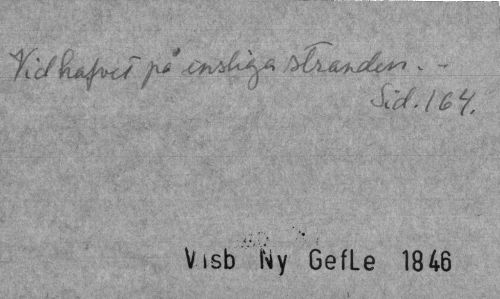 Vid hafvet på ensliga stranden. -
Sid. 164.
Visb Ny GefLe 1846